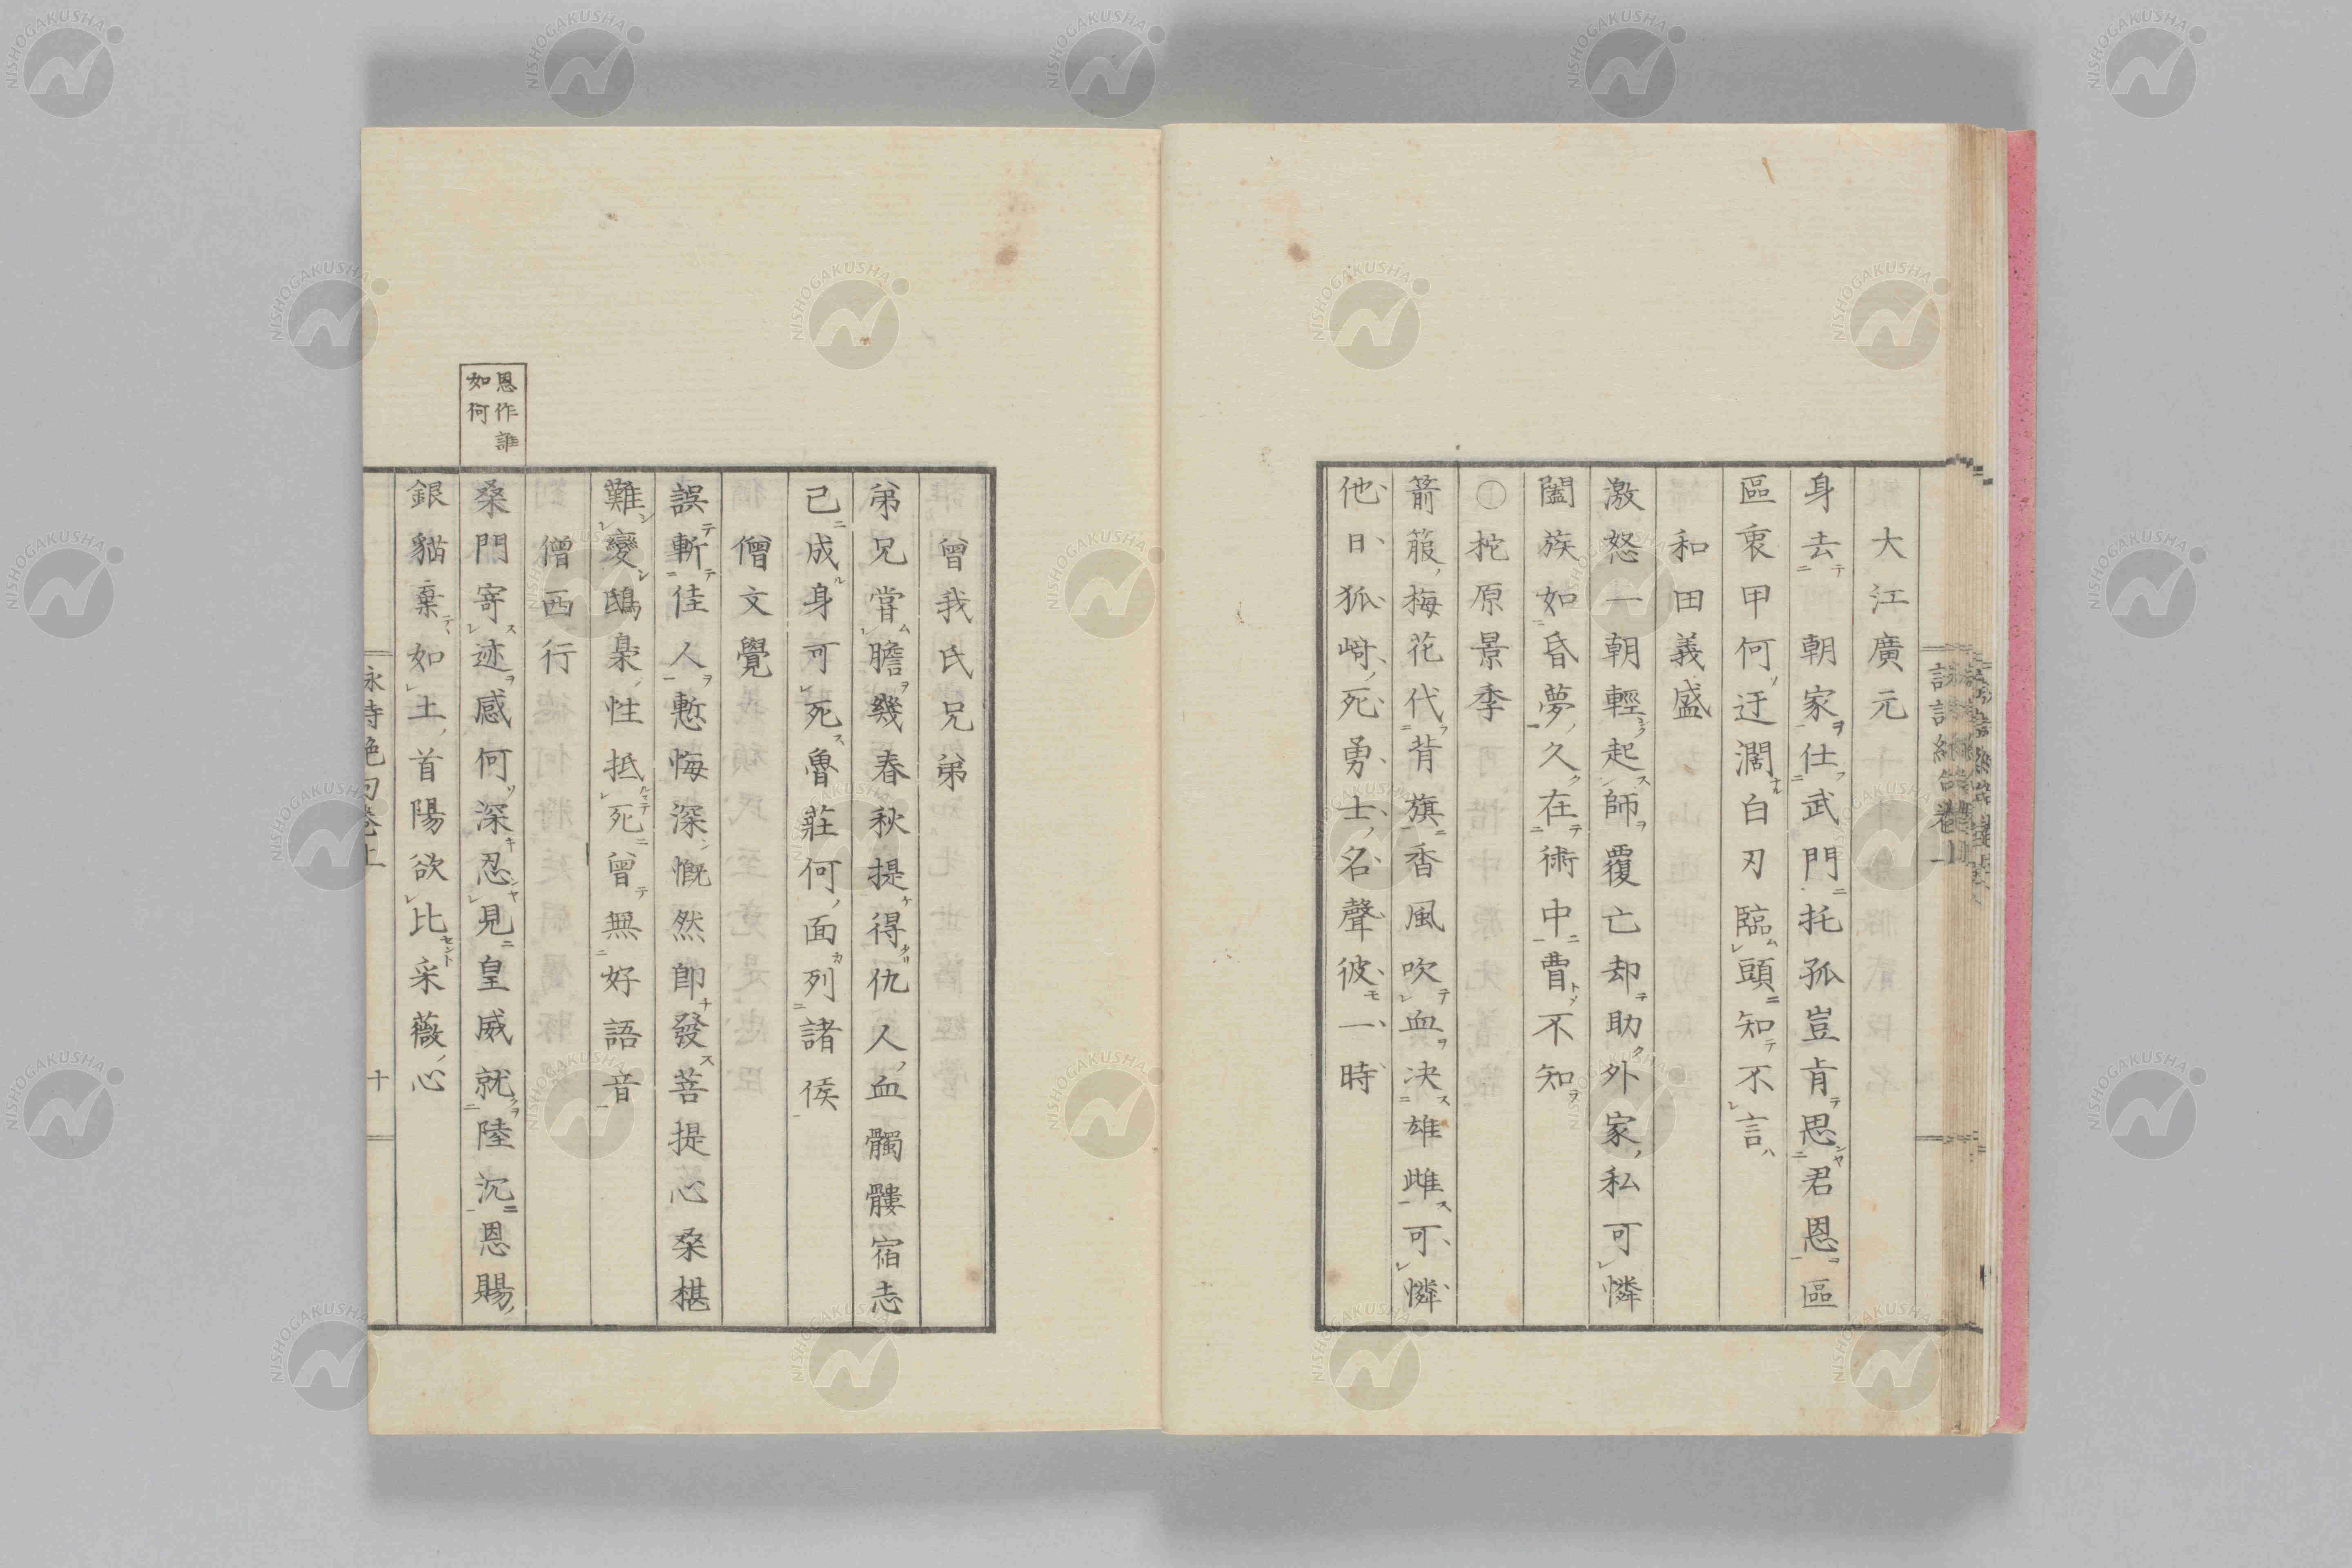 大江廣元
身去朝家仕武門托孤豈肯思君恩區
區衷甲何迂濶白刃臨頭知不言
和田義盛
激怒一朝輕起師覆亡却助外家私可憐
闔族如昏夢久在術中曹不知
〇梶原景季
箭箙梅花代背旗香風吹血決雄雌可憐
他日狐﨑死勇士名聲彼一時
曾我氏兄弟
弟兄嘗膽幾春秋提得仇人血髑髏宿志
已成身可死魯莊何面列諸侯
僧文覺
誤斬佳人慙悔深慨然即發菩提心桑椹
難變鴟梟性抵死曾無好語音
僧西行
恩作誰
如何
桑門寄迹感何深忍見皇威就陸沉恩賜
銀貓棄如土首陽欲比采薇心
詠詩絕句卷上
十
NISHOGAKUSHA